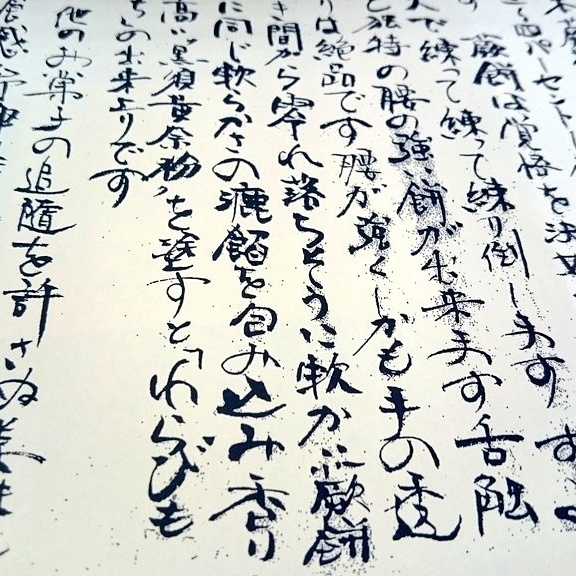 四パーセント
蕨餅は覚悟を決め
で練って練って練り倒します す
と独特の腰の強い餅が出来ます 舌触
りは絶品です 腰が強くしかも手の透
き間から零れ落ちそうに軟かい蕨餅
に同じ軟らかさの漉餡を包み込み香り
高い黒須黄奈粉を塗すと「わらびも
ちの出来上りです
他のお菓子の追随を許さぬ
食感